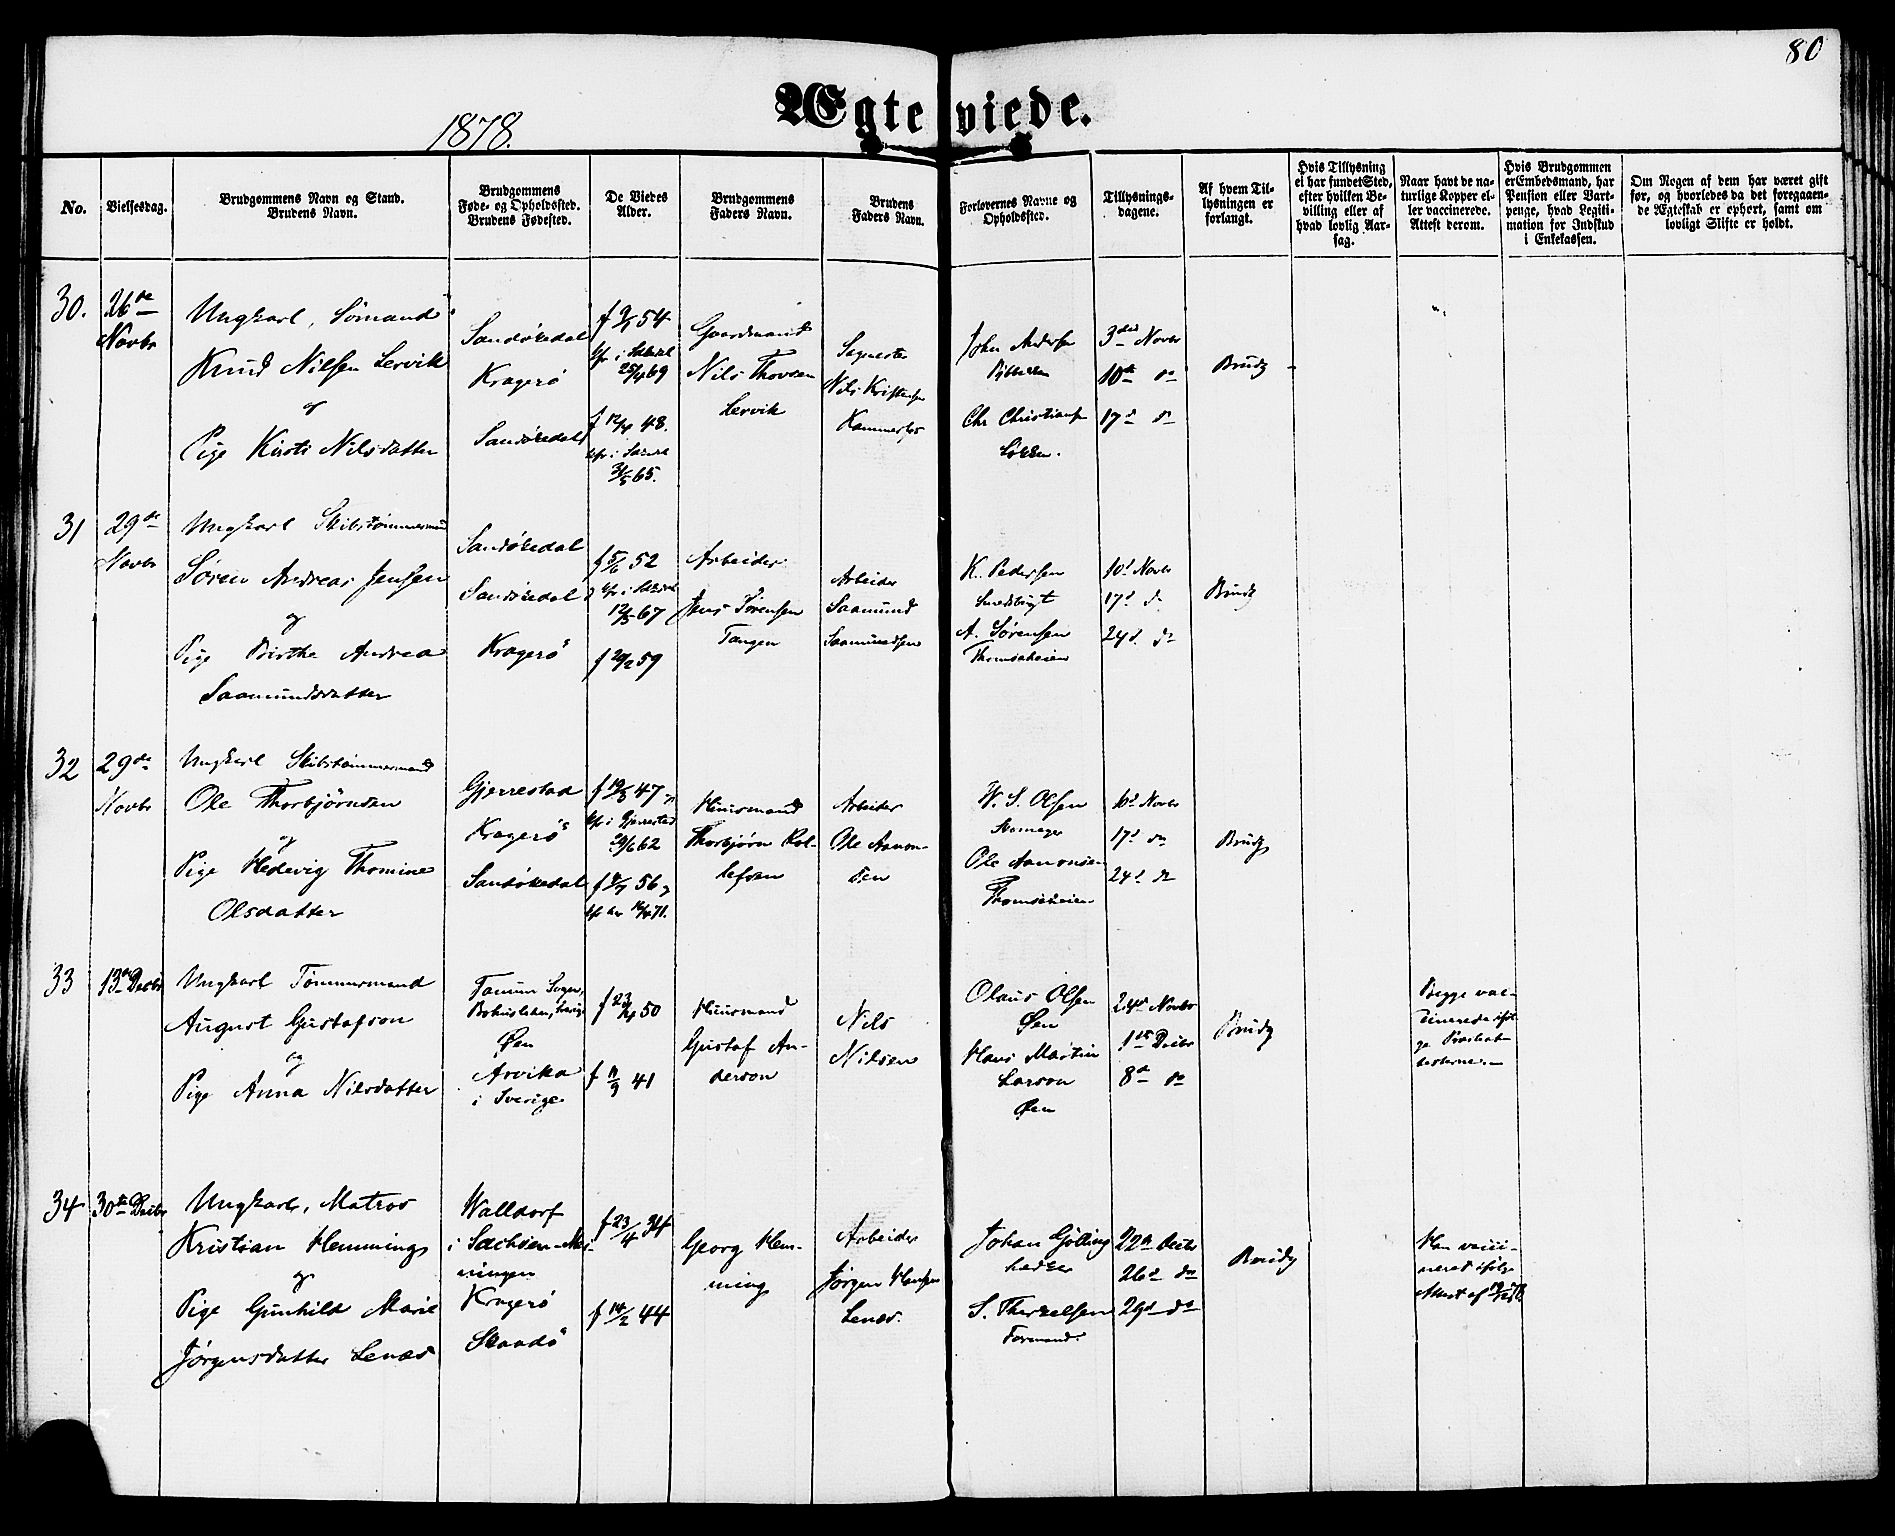 80
Ægteviede.
1878.
No.
Vielsesdag.
Brudgommens Navn og Stand.
Brudens Navn.
Brudgommens
Føde- og Opholdssted.
Brudens Fødested.
De Viedes
Alder.
Brudgommens
Faders Navn.
Brudens
Faders Navn.
Forlovernes Navne og
Opholdssted.
Tillysnings-
dagene.
Af hvem Til-
lysningen er
forlangt.
Hvis Tillysning
ei har fundet Sted,
efter hvilken Be-
villing eller af
hvad lovlig Aar-
sag.
Naar havt de na-
turlige Kopper el-
ler vaccinerede.
Attest derom.
Hvis Brudgommen
er Embedsmand, har
Pension eller Vart-
penge, hvad Legiti-
mation for Indskud
i Enkekassen.
Om Nogen af dem har været gift
før, og hvorledes da det foregaaen-
de Ægteskab er ophørt, samt om
lovligt Skifte er holdt.
30.
26de
Novbr
Ungkarl, Sømand
Knud Nilsen Lervik
og
Pige Kirsti Nilsdatter
Sandøkedal
Kragerø
Sandøkedal
54
25/4 69
f 12/4 48.
65.
Gaardmand
Nils Thovsen
Lervik
Nils Kristensen
Kammerfos
John Andersen
Chr Christiansen
3die Novbr
10de do
17d do
Brudg
31
29de
Novbr
Ungkarl Skibstømmermand
Søren Andreas Jensen
og
Pige Birthe Andrea
Saamundsdatter
Sandøkedal
Sandøkedal
Kragerø
f 5/6 52
12/5 67
f 20/2 59
Arbeider
Jens Sørensen
Tangen
Arbeider
Saamund
Saamundsen
K. Pedersen
Smedsbugt
A. Sørensen
Thomsaheien
10d Novbr
17d do
24d do
Brudg
32
29de
Novbr
Ungkarl Skibstømmermand
Ole Thorbjørnsen
og
Pige Hedevig Thomine
Olsdatter
Gjerrestad
Kragerø
Sandøkedal
47
kfr i Gjerrestad
62
56
71.
Huusmand
Thorbjørn Rol-
lefsen
Arbeider
Ole Aanon-
sen
W. S. Olsen
Skomager
Ole Aanonsen
Thomsaheien
10d Novbr
17d do
24d do
Brudg
33
13de Decbr
Ungkarl Tømmermand
August Gustafson
og
Pige Anna Nilsdatter
Tanum Sogn,
Bohuslehn, Sverige
Øen
Arvika
i Sverige
50
f 11/9 41
Huusmand
Gustaf An-
derson
Nils
Nilsen
Olaus Olsen
Øen
Hans Martin
Larson
Øen
24de Novbr
1ste Decbr
8de do
Brudg
Begge vac-
cinerede iføl-
ge Præsteat-
testerne.
34
30te Decbr
Ungkarl, Matros
Kristian Hemming
og
Pige Gunhild Marie
Jørgensdatter Lenæs
Walldorf
i Sachsen-Mei-
ningen
Kragerø
Skaadø
f 23/4 34
f 14/2 44
Georg Hem-
ming
Arbeider
Jørgen Hansen
Lenæs.
Johan Gjølling
S. Therkelsen
Formand.
22de Decbr
26d do
29d do
Brudg
Han vacci-
neret ifølge
Attest af